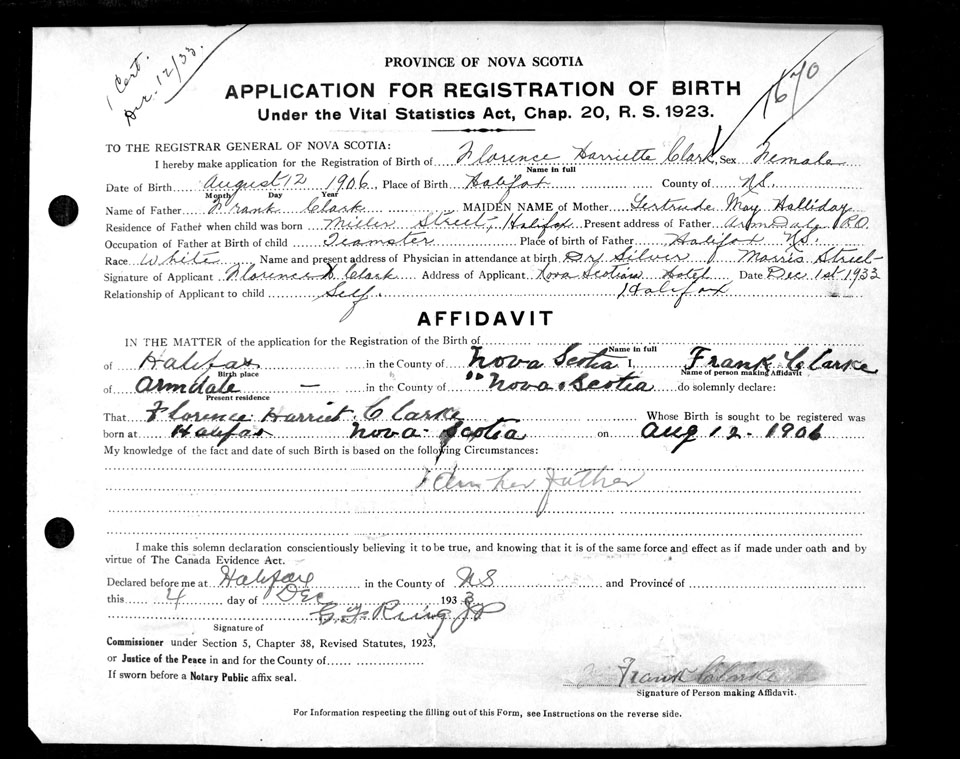 1 Cert.
Dec. 12/33.
1670
PROVINCE OF NOVA SCOTIA
APPLICATION FOR REGISTRATION OF BIRTH
Under the Vital Statistics Act, Chap. 20, R. S. 1923.
TO THE REGISTRAR GENERAL OF NOVA SCOTIA:
I hereby make application for the Registration of Birth of Florence Harriette Clark, Sex Female
Name in full
Date of Birth August 12 1906, Place of Birth Halifax County of N.S.
Month Day Year
Name of Father Frank Clark MAIDEN NAME of Mother Gertrude May Halliday
Residence of Father when child was born Street, Halifax Present address of Father Armdale P.O.
Occupation of Father at Birth of child Teamster Place of birth of Father Halifax N.S.
Race White Name and present address of Physician in attendance at birth Dr Silver Morris Street
Signature of Applicant Florence H Clark Address of Applicant Nova Scotian Hotel Date Dec 1st 1933
Relationship of Applicant to child Self. Halifax
AFFIDAVIT
IN THE MATTER of the application for the Registration of the Birth of
Name in full
of Halifax in the County of Nova Scotia I, Frank Clarke
Birth place Name of person making Affidavit
of Armdale — in the County of " Nova Scotia do solemnly declare:
Present residence
That Florence Harriet Clarke Whose Birth is sought to be registered was
born at Halifax Nova Scotia on Aug 12 - 1906
My knowledge of the fact and date of such Birth is based on the following Circumstances:
I am her father
I make this solemn declaration conscientiously believing it to be true, and knowing that it is of the same force and effect as if made under oath and by
virtue of The Canada Evidence Act.
Declared before me at Halifax in the County of NS and Province of
this 4 day of Dec 1933
JP
Signature of
Commissioner under Section 5, Chapter 38, Revised Statutes, 1923,
or Justice of the Peace in and for the County of
If sworn before a Notary Public affix seal.
Frank Clarke
Signature of Person making Affidavit.
For Information respecting the filling out of this Form, see Instructions on the reverse side.